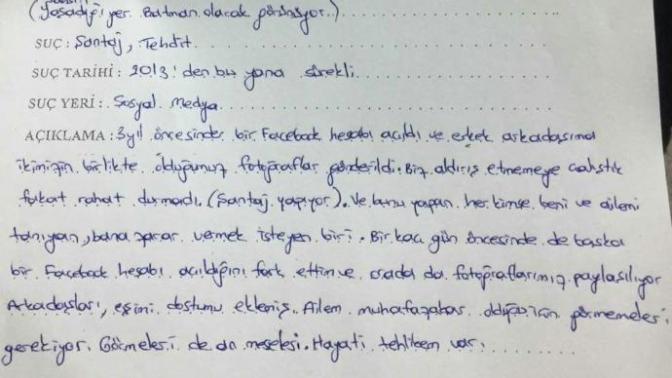 (Yaşadığı yer Batman olarak görünüyor.)
SUÇ : Şantaj, Tehdit
SUÇ TARİHİ : 2013'den bu yana sürekli
SUÇ YERİ : Sosyal Medya
AÇIKLAMA : 3 yıl öncesinde bir Facebook hesabı açıldı ve erkek arkadaşıma
ikimizin birlikte olduğumuz fotoğraflar gönderildi. Biz aldırış etmemeye çalıştık
fakat rahat durmadı. (Şantaj yapıyor). Ve bunu yapan her kimse beni ve ailemi
tanıyan, bana zarar vermek isteyen biri. Bir kaç gün öncesinde de başka
bir Facebook hesabı açıldığını fark ettim ve orada da fotoğraflarımız paylaşılıyor
Arkadaşları, eşimi dostumu eklemiş. Ailem muhafazakar olduğu için görmemeleri
gerekiyor. Görmeleri de an meselesi. Hayati tehlikem var.